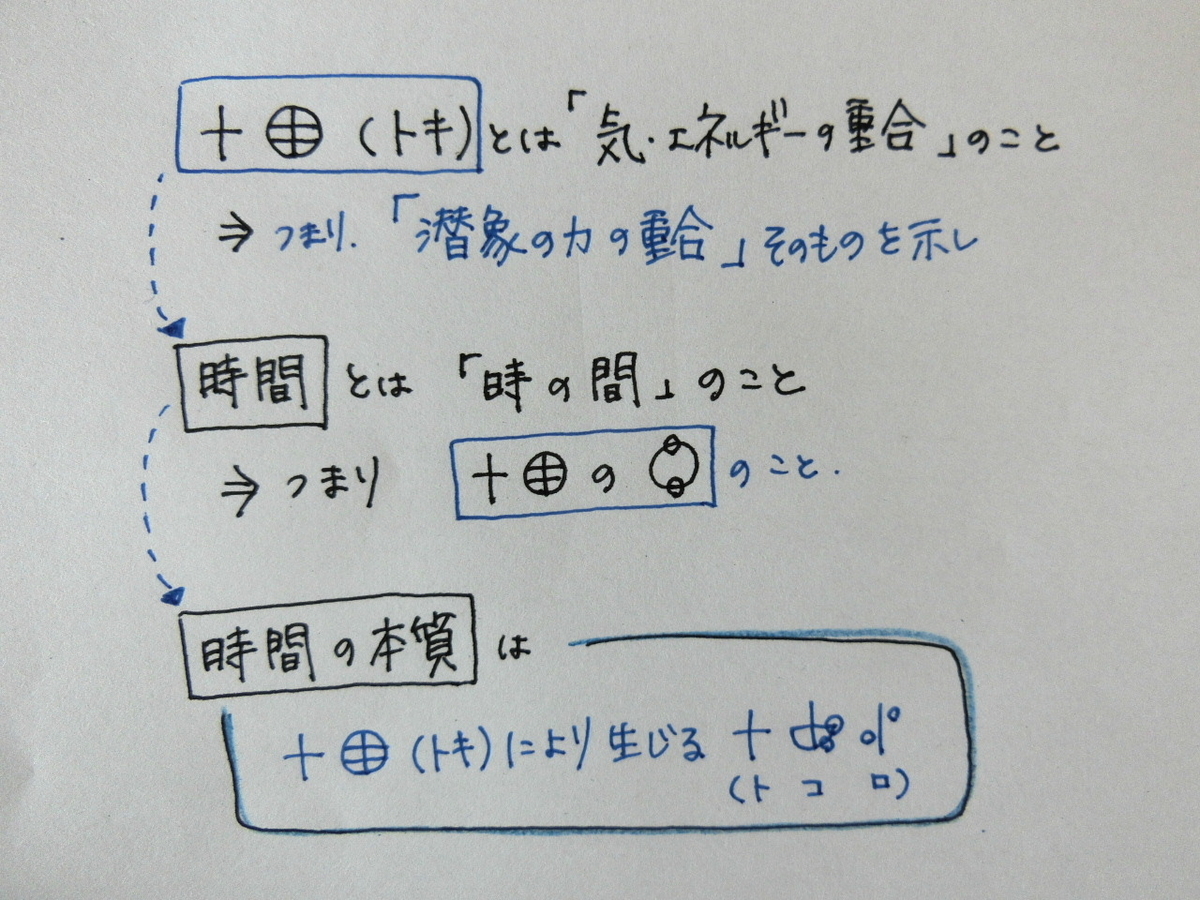 十 ㊉ (トキ) とは「気・エネルギーの重合」のこと
⇒ つまり.「潜象の力の重合」そのものを示し
時間 とは 「時の間」のこと
⇒ つまり 十 ㊉ の のこと.
時間の本質 は
十 ㊉ (トキ) により 生じる 十
(ト コ ロ)